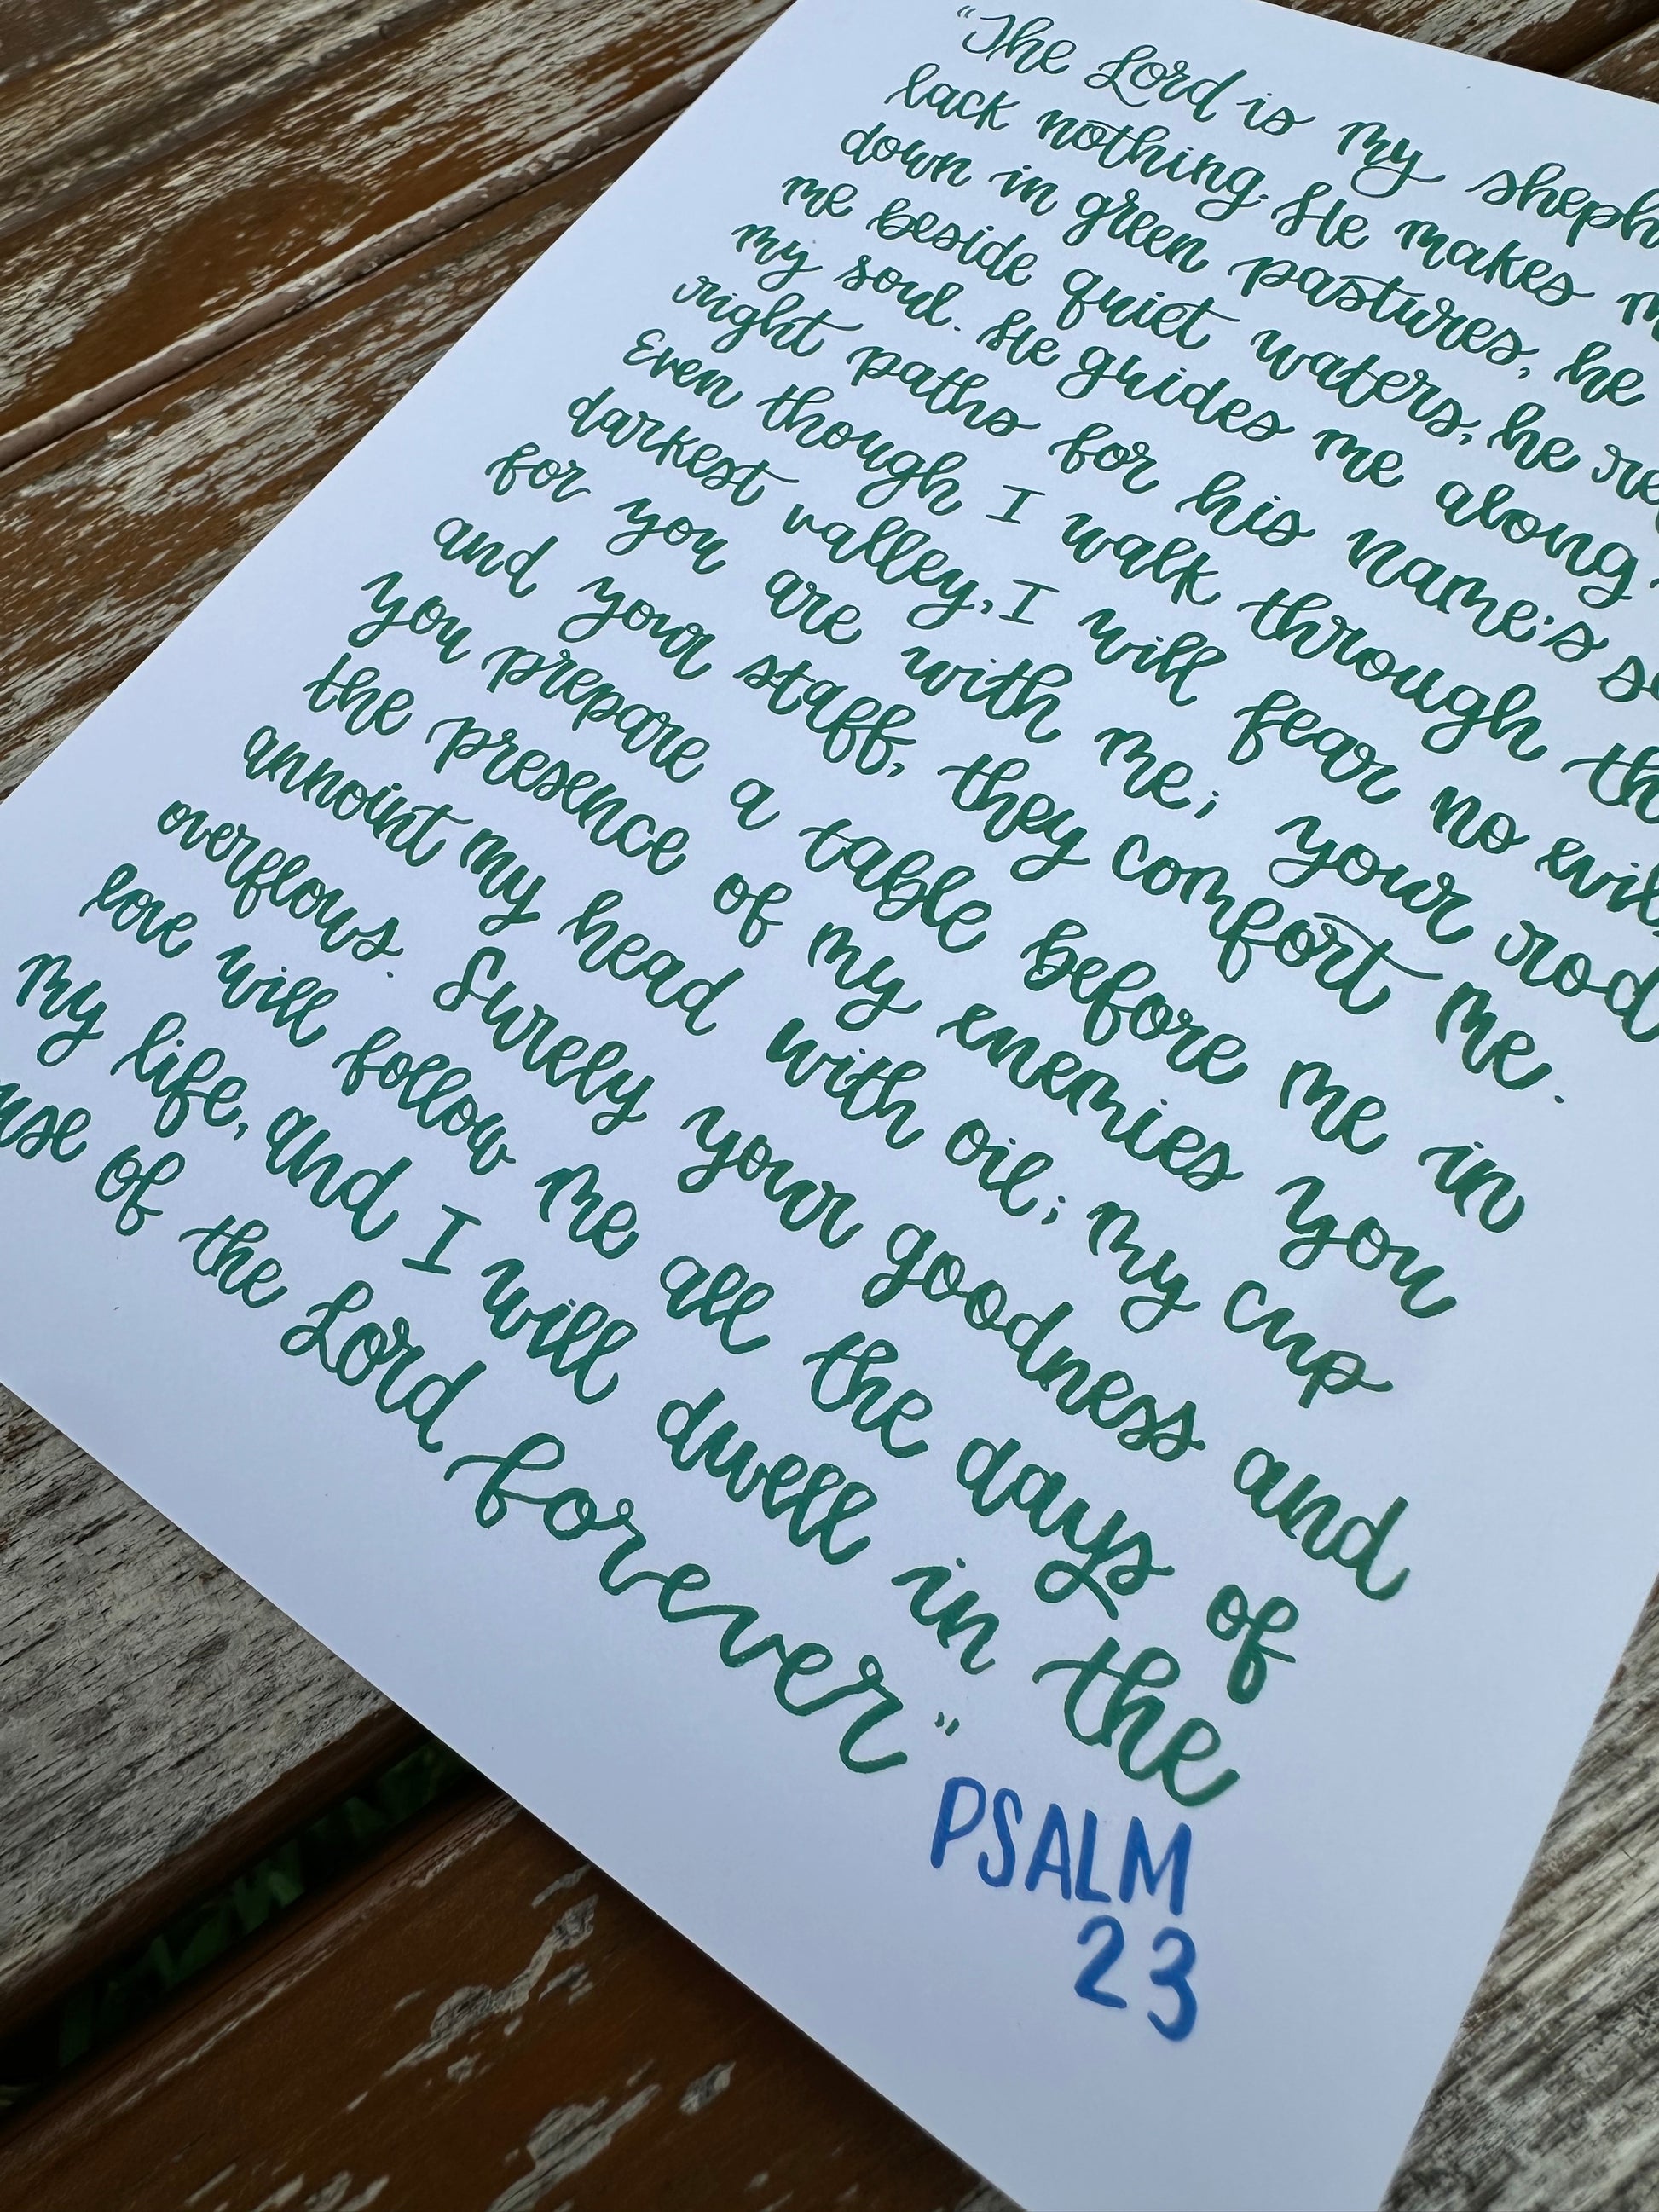 "The Lord is my sheph
lack nothing. He makes m
down in green pastures, he
me beside quiet waters, he re
my soul. He guides me along
right paths for his name's s
Even though I walk through th
darkest valley, I will fear no evil,
for you are with me; your rod
and your staff, they comfort me.
You prepare a table before me in
the presence of my enemies you
annoint my head with oil; my cup
overflows. Surely your goodness and
love will follow me all the days of
my life, and I will dwell in the
use of the Lord forever"
PSALM
23